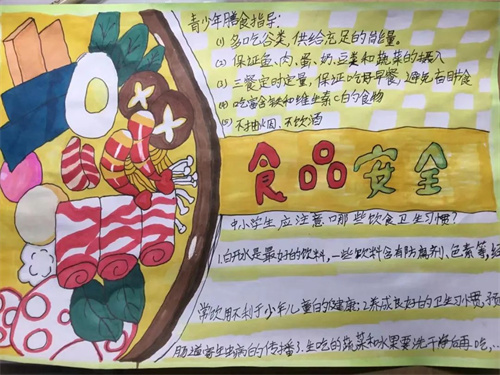 青少年膳食指导:
(1) 多吃谷类,供给充足的能量。
(2) 保证鱼、肉、蛋、奶、豆类和蔬菜的摄入
(3) 三餐定时定量,保证吃好早餐,避免盲目节食
(4) 吃富含铁和维生素c的食物
(5) 不抽烟、不饮酒
食品安全
中小学生应注意哪些饮食卫生习惯?
1.白开水是最好的饮料,一些饮料含有防腐剂、色素等,经
常饮用不利于少年儿童的健康;2.养成良好的卫生习惯,预
肠道寄生虫病的传播3.生吃的蔬菜和水果要洗干净后再吃,…